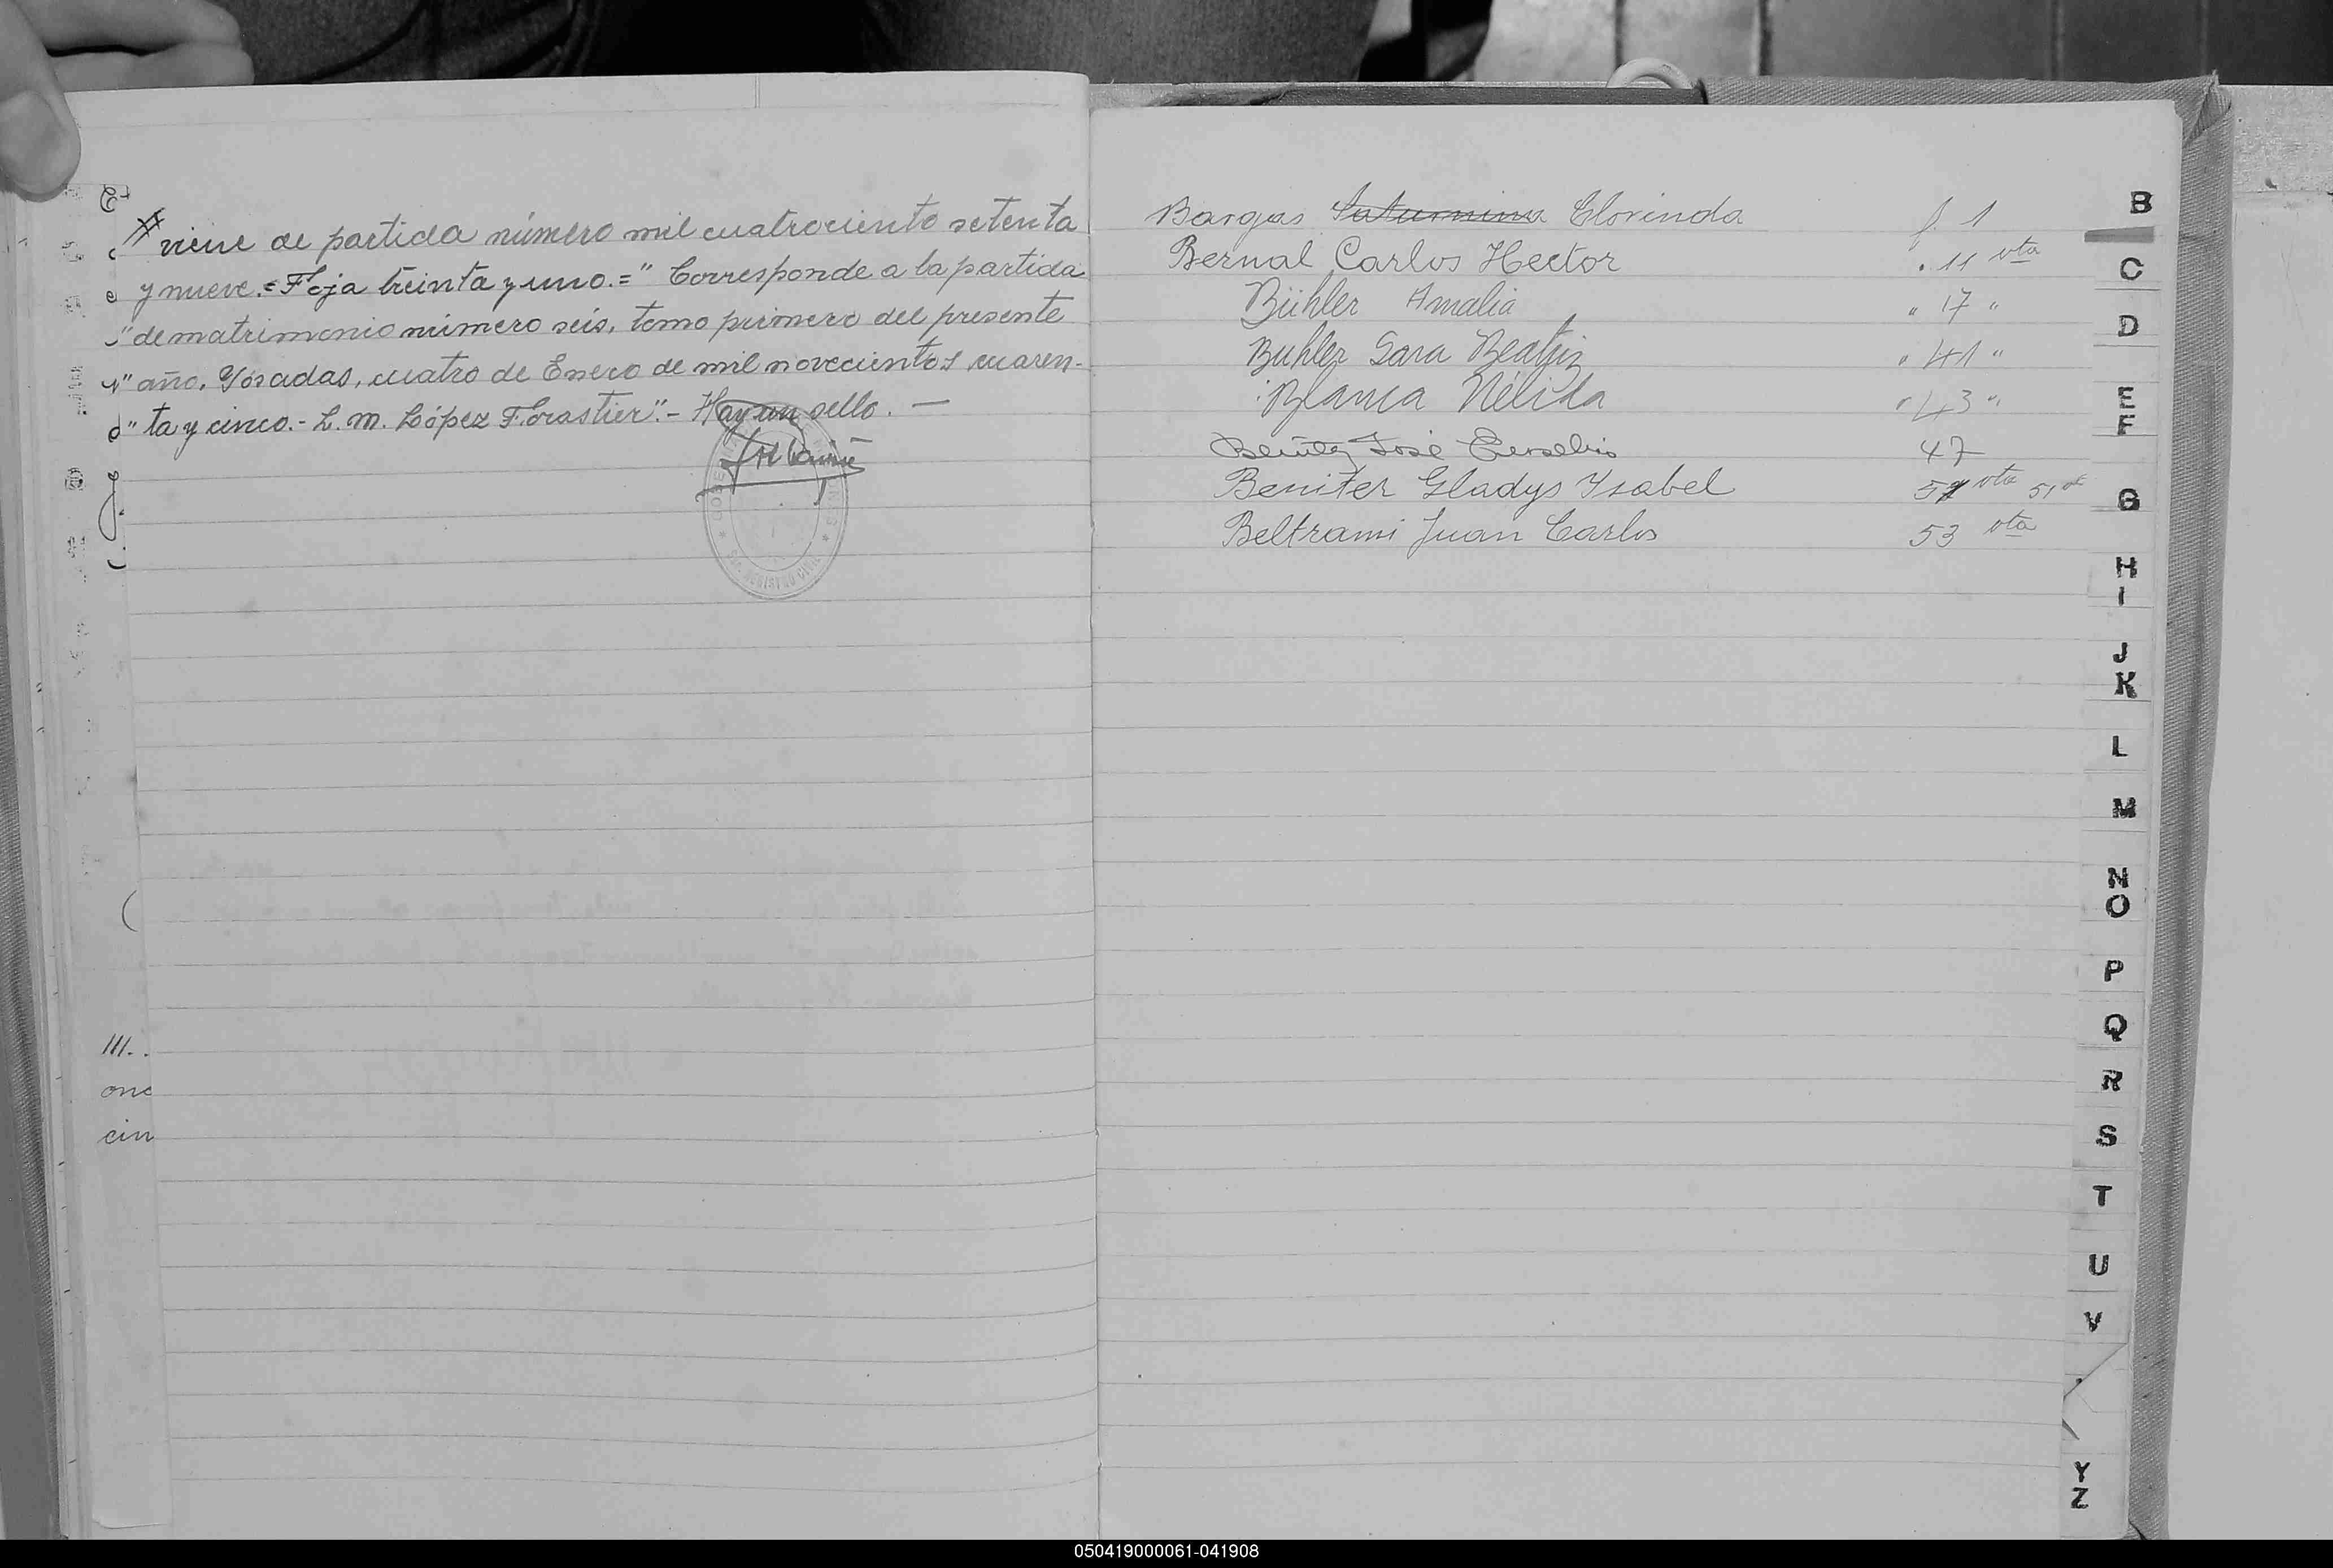 # viene de partida número mil cuatrociento setenta
y nueve.= Foja treinta y uno.=" Corresponde a la partida
"de matrimonio número seis, tomo primero del presente
" año. Posadas, cuatro de Enero de mil novecientos cuaren-
" ta y cinco.- L. M. López Forastier".- Hay un sello. —
REGISTRO CIVIL
III. .
onc
cin
Bargas Saturnina Clorinda f. 1
Bernal Carlos Hector . 11 vta
Bühler Amalia " 17 "
Buhler Sara Beatriz " 41 "
Blanca Nélida " 43 "
Benítez José Eusebio 47
Beniter Gladys Ysabel vta 51
Beltrami Juan Carlos 53 vta
B
C
D
E
F
G
H
I
J
K
L
M
N
O
P
Q
R
S
T
U
V
Y
Z
050419000061-041908